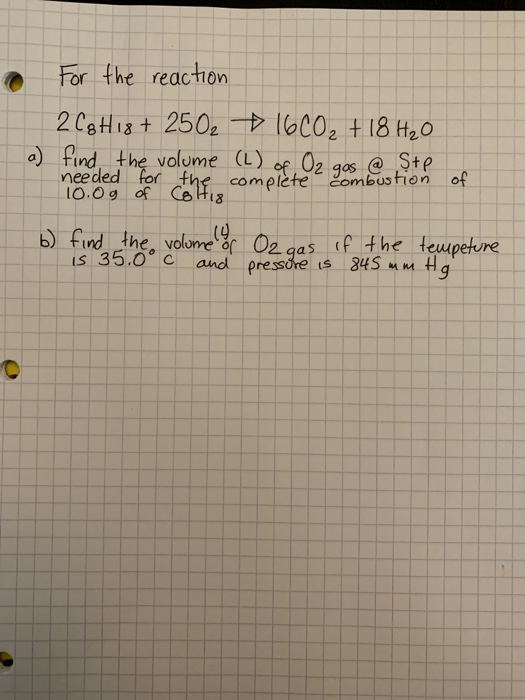 For the reaction
2 C8H18 + 25O2 → 16CO2 + 18 H2O
a) find the volume (L) of O2 gas @ Stp
needed for the complete combustion of
10.0g of C8H18
b) find the volume (L) of O2 gas if the tempeture
is 35.0° C and pressure is 845 mm Hg